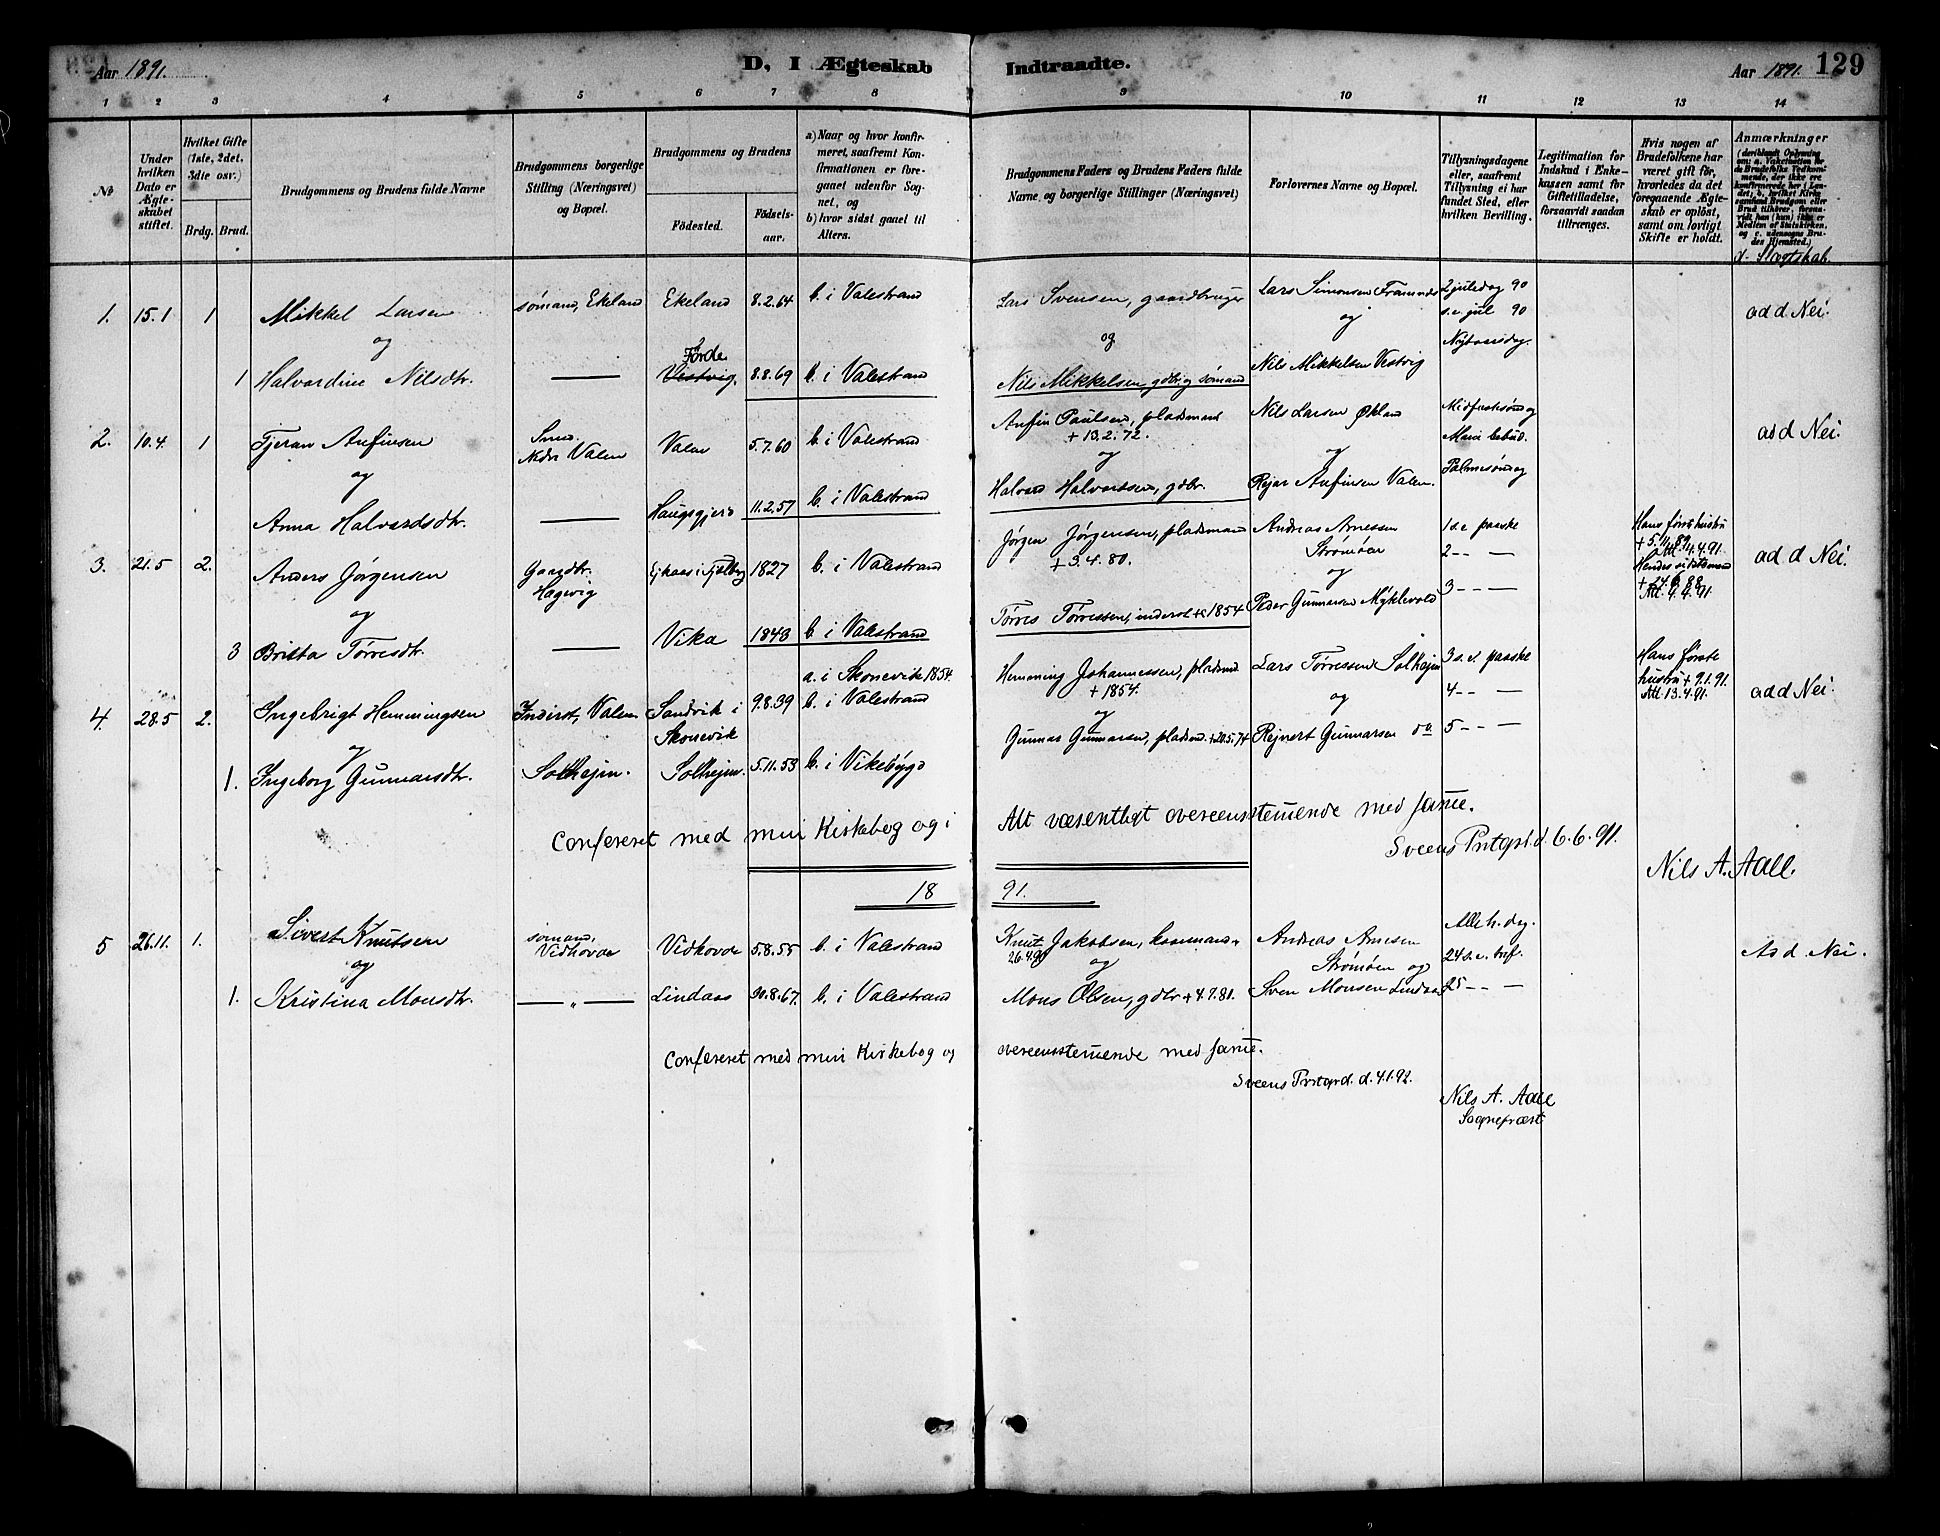 Aar 1891.
D, I Ægteskab Indtraadte.
Aar 1891. 129
1 2 3 4 5 6 7 8 9 10 11 12 13 14
No
Under hvilken Dato er Ægteskabet stiftet.
Hvilket Gifte (1ste, 2det, 3die osv.)
Brdg. Brud.
Brudgommens og Brudens fulde Navne
Brudgommens borgerlige Stilling (Næringsvei) og Bopæl.
Brudgommens og Brudens
Födested.
Födselsaar.
a) Naar og hvor konfirmeret, saafremt Konfirmationen er foregaaet udenfor Sognet, og
b) hvor sidst gaaet til Alters.
Brudgommens Faders og Brudens Faders fulde Navne, og borgerlige Stillinger (Næringsvei)
Forlovernes Navne og Bopæl.
Tillysningsdagene eller, saafremt Tillysning ei har fundet Sted, efter hvilken Bevilling.
Legitimation for Indskud i Enkekassen samt for Giftetilladelse, forsaavidt saadan tiltrænges.
Hvis nogen af Brudefolkene har været gift för, hvorledes da det foregaaende Ægteskab er oplöst, samt om lovligt Skifte er holdt.
Anmærkninger
d. Slægtskab.
1. 15.1 1 Mikkel Larsen sømand, Ekeland Ekeland 8.2.64 b. i Valestrand Lars Svensen, gaardbruger Lars Simonsen Framnes 2 juledag 90 ad d Nei.
og og og s.e. jul 90
1 Halvardine Nilsdtr. — Førde Vestvig, 8.8.69 b. i Valestrand Nils Mikkelsen, gdbr. sømand Nils Mikkelsen Vestvig Nytaarsdag.
2. 10.4 1 Tjeran Anfinsen Smed Nedre Valen Valen 5.7.60 b. i Valestrand Anfin Paulsen, pladsmand + 13.2.72. Nils Larsen Økland Midfastesøndag ad d Nei.
og og og Marie bebud.
Anna Halvardsdtr. — Haugsgjerd 11.2.57 b. i Valestrand Halvard Halvardsen, gdbr. Rejar Anfinsen Valen. Palmesøndag
3. 21.5 2. Anders Jørgensen Gaardbr. Hagevig 1827 b. i Valestrand Jørgen Jørgensen, pladsmand + 3.4.80. Andreas Arnessen Strømøen 1 s.e. paaske Hans første hustru + 5.11.89 Att. 4.4.91. ad d Nei.
og og 2 - - —
3 Britta Tørresdtr. — Vika 1843 b. i Valestrand Tørres Tørressen, inderst + 1854 Peder Gunnarsen Myklevold 3 - - —
4. 28.5 2. Ingebrigt Hemmingsen Inderst, Valen Sandvik i Skonevik 9.8.39 a. i Skonevik 1854. b. i Valestrand Hemming Johannessen, pladsmd. + 1854. Lars Tørressen Solhejm 3 s.e. paaske Hans første hustru + 9.1.91. Att 13.4.91. ad d Nei.
og og og 4 - - —
1. Ingeborg Gunnarsdtr. Solhejm. Solhejm. 5.11.53 b. i Vikebygd Gunnar Gunnarsen, pladsmd. + 20.5.74 Rejnert Gunnarsen do 5 - - —
Confereret med min Kirkebog og i Alt væsentligt overeensstemmende med samme.
Sveens Prstgrd. d. 6.6.91.
Nils A. Aall
18 91.
5 26.11. 1. Sivert Knutsen sømand, Vidhovda Vidhovda 5.8.55 b. i Valestrand Knut Jakobsen, 26.4.90 Andreas Arnesen Strømøen og Alleh. dag. As d Nei.
og og 24 s.e. tref.
1. Kristina Monsdtr. — „ — Lindaas 30.8.67. b. i Valestrand Mons Olsen, gdbr + 4.7.81. Sven Monsen Lindaas 25 - - —
Confereret med min Kirkebog og overeensstemmende med samme.
Sveens Prstgrd. d. 4.1.92.
Nils A. Aall
Sognepræst